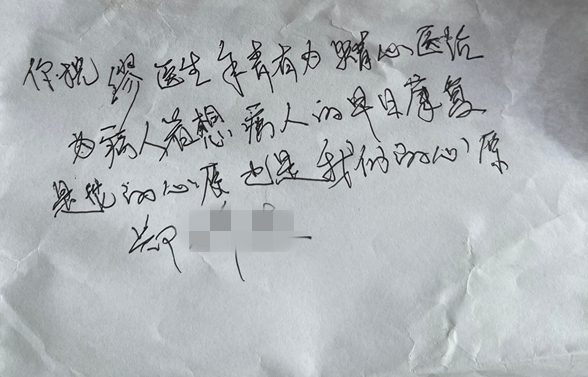 缪医生年青有为 精心医治
为病人着想 病人的早日康复
是他的心愿也是我们的心愿
郑